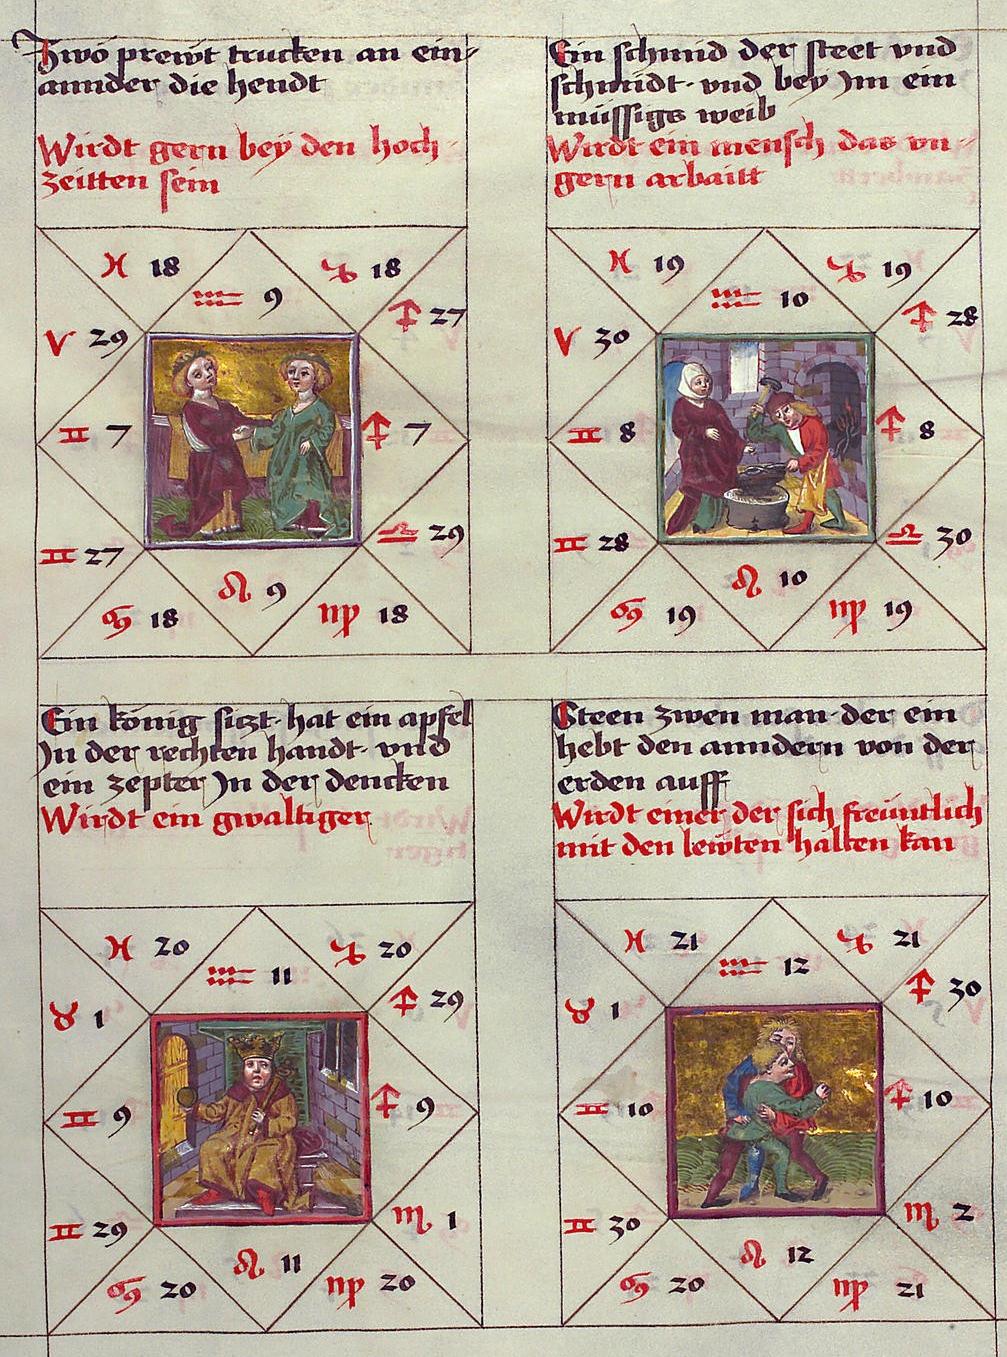 Zwo prewt trucken an ein-
annder die hendt
Wirdt gern bey den hoch-
zeitten sein
♓ 18
♒ 9
♑ 18
♐ 27
♈ 29
♊ 7
♐ 7
♊ 27
♎ 29
♋ 18
♌ 9
♍ 18
Ein schmid der steet vnd
schmidt· vnd bey Im ein
müssigs weib
Wirdt ein mensch das vn-
gern arbaitt
♓ 19
♒ 10
♑ 19
♐ 28
♈ 30
♊ 8
♐ 8
♊ 28
♎ 30
♋ 19
♌ 10
♍ 19
Ein könig sitzt· hat ein apfel
In der rechten handt· vnd
ein zepter In der dencken
Wirdt ein gwaltiger
♓ 20
♒ 11
♑ 20
♐ 29
♉ 1
♊ 9
♐ 9
♊ 29
♏ 1
♋ 20
♌ 11
♍ 20
Steen zwen man· der ein
hebt den anndern von der
erden auff
Wirdt einer der sich freüntlich
mit den lewten halten kan
♓ 21
♒ 12
♑ 21
♐ 30
♉ 1
♊ 10
♐ 10
♊ 30
♏ 2
♋ 20
♌ 12
♍ 21